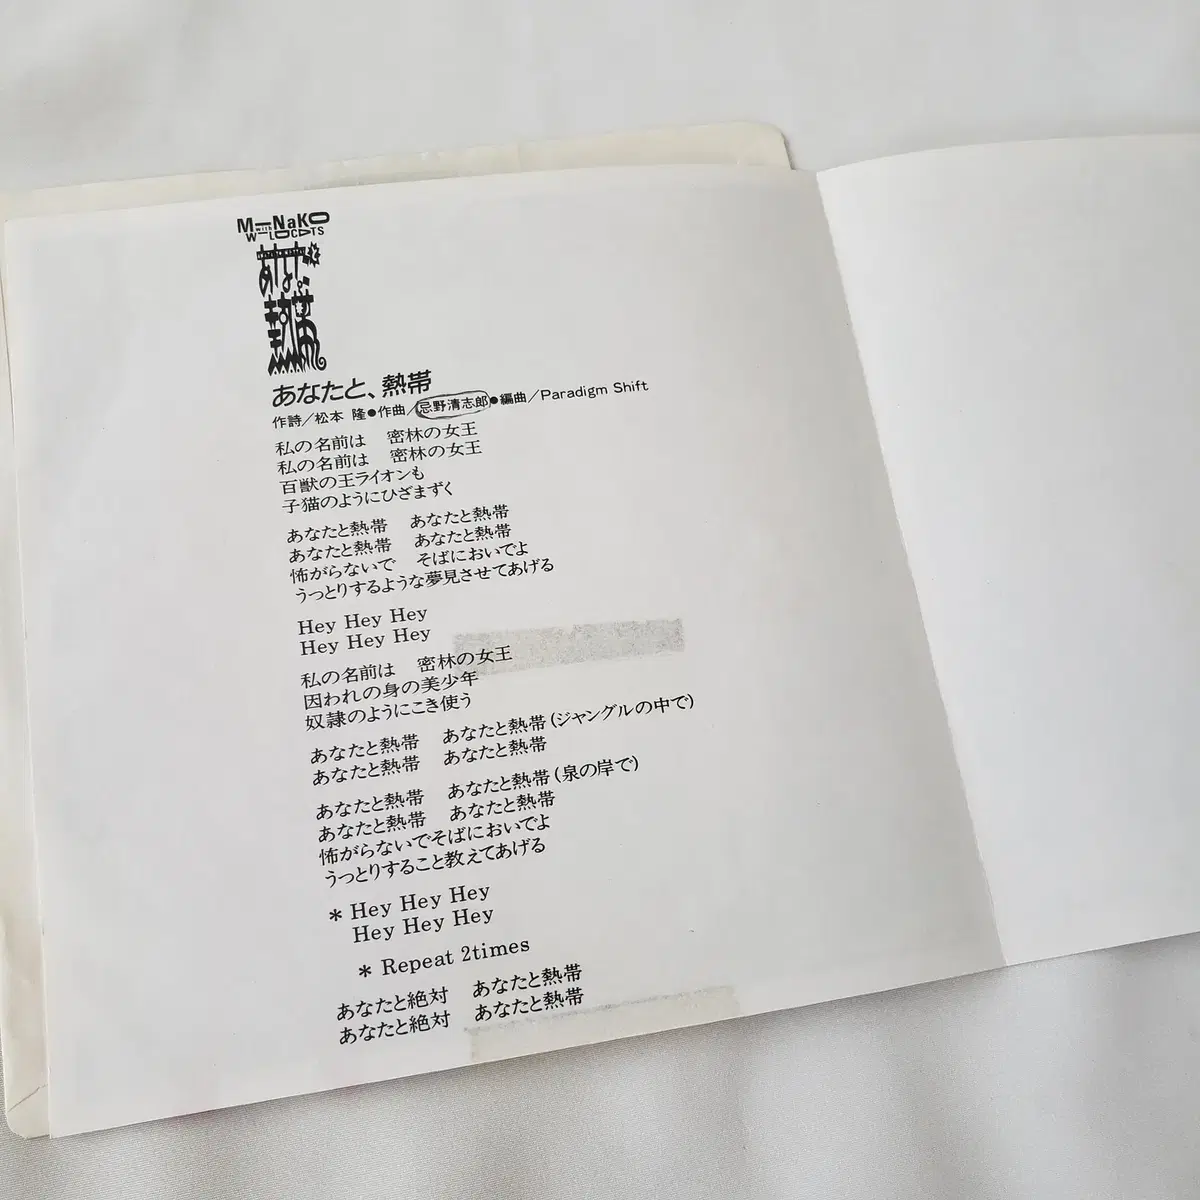 MiNaKO
with
WiLDCATS
あなたと、熱帯
あなたと、熱帯
作詩/松本 隆●作曲/忌野清志郎●編曲/Paradigm Shift
私の名前は 密林の女王
私の名前は 密林の女王
百獣の王ライオンも
子猫のようにひざまずく
あなたと熱帯 あなたと熱帯
あなたと熱帯 あなたと熱帯
怖がらないで そばにおいでよ
うっとりするような夢見させてあげる
Hey Hey Hey
Hey Hey Hey
私の名前は 密林の女王
因われの身の美少年
奴隷のようにこき使う
あなたと熱帯 あなたと熱帯(ジャングルの中で)
あなたと熱帯 あなたと熱帯
あなたと熱帯 あなたと熱帯(泉の岸で)
あなたと熱帯 あなたと熱帯
怖がらないでそばにおいでよ
うっとりすること教えてあげる
* Hey Hey Hey
Hey Hey Hey
* Repeat 2times
あなたと絶対 あなたと熱帯
あなたと絶対 あなたと熱帯